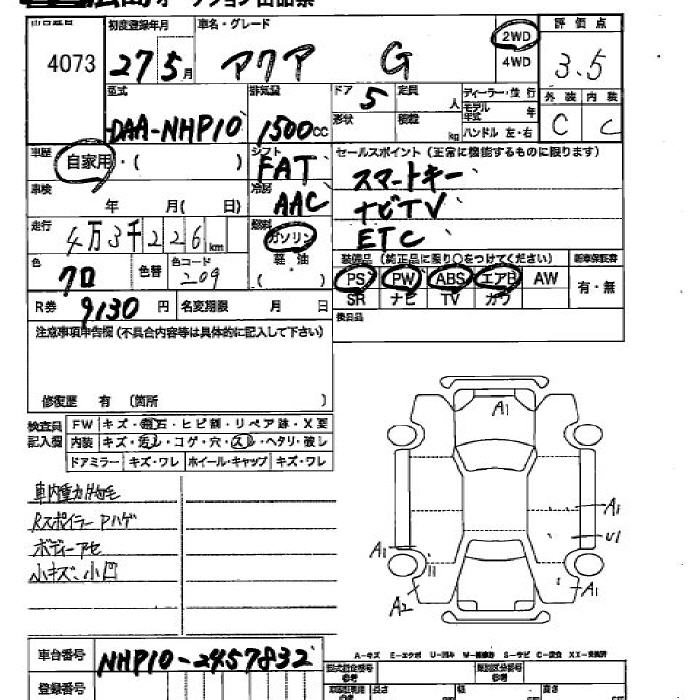 4073
初度登録年月
27 5 月
車名・グレード
アクア G
2WD
4WD
評価点
3.5
型式
DAA-NHP10
排気量
1500 cc
ドア 5
定員 人
形状
積載 kg
ディーラー・並行
モデル年式 年
ハンドル 左・右
外装 内装
C C
車歴
自家用・( )
シフト
FAT
セールスポイント (正常に機能するものに限ります)
スマートキー
ナビTV
ETC
車検
年 月( 日)
冷房
AAC
走行
4万3千226 km
燃料
ガソリン
軽・油
( )
色
クロ
色替
色コード
209
装備品 (純正品に限り○をつけてください)
新車保証書
PS PW ABS エアB AW
SR ナビ TV カワ
有・無
後日品
R券 9130 円
名変期限 月 日
注意事項申告欄(不具合内容等は具体的に記入して下さい)
修復歴 有 (箇所 )
検査員記入欄
FW キズ・飛石・ヒビ割・リペア跡・X要
内装 キズ・汚レ・コゲ・穴・スレ・ヘタリ・破レ
ドアミラー キズ・ワレ ホイール・キャップ キズ・ワレ
Rスポイラー アハゲ
ボディーアセ
小キズ、小凹
A1
A1
U1
A1
A1
A2
車台番号
NHP10-2457832
登録番号
A-キズ E-エクボ U-凹み W-補修跡 S-サビ C-腐食 XX-交換済
型式指定番号
類別区分番号
参考
参考
長さ
幅
高さ